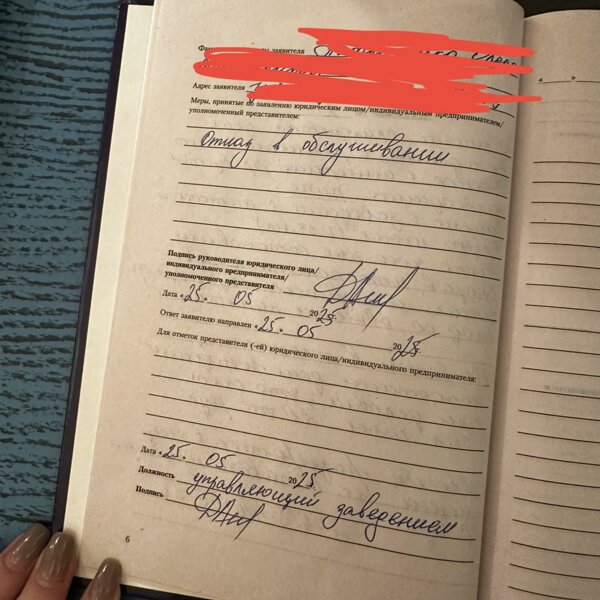 заявителя
Адрес заявителя
Меры, принятые по заявлению юридическим лицом/индивидуальным предпринимателем/
уполномоченный представителем:
Отказ в обслуживании
Подпись руководителя юридического лица/
индивидуального предпринимателя/
уполномоченного представителя
Дата «25. 05 2025г.
Ответ заявителю направлен «25. 05 2025г.
Для отметок представителя (-ей) юридического лица/индивидуального предпринимателя:
Дата «25. 05 2025
Должность управляющий заведением
Подпись
6